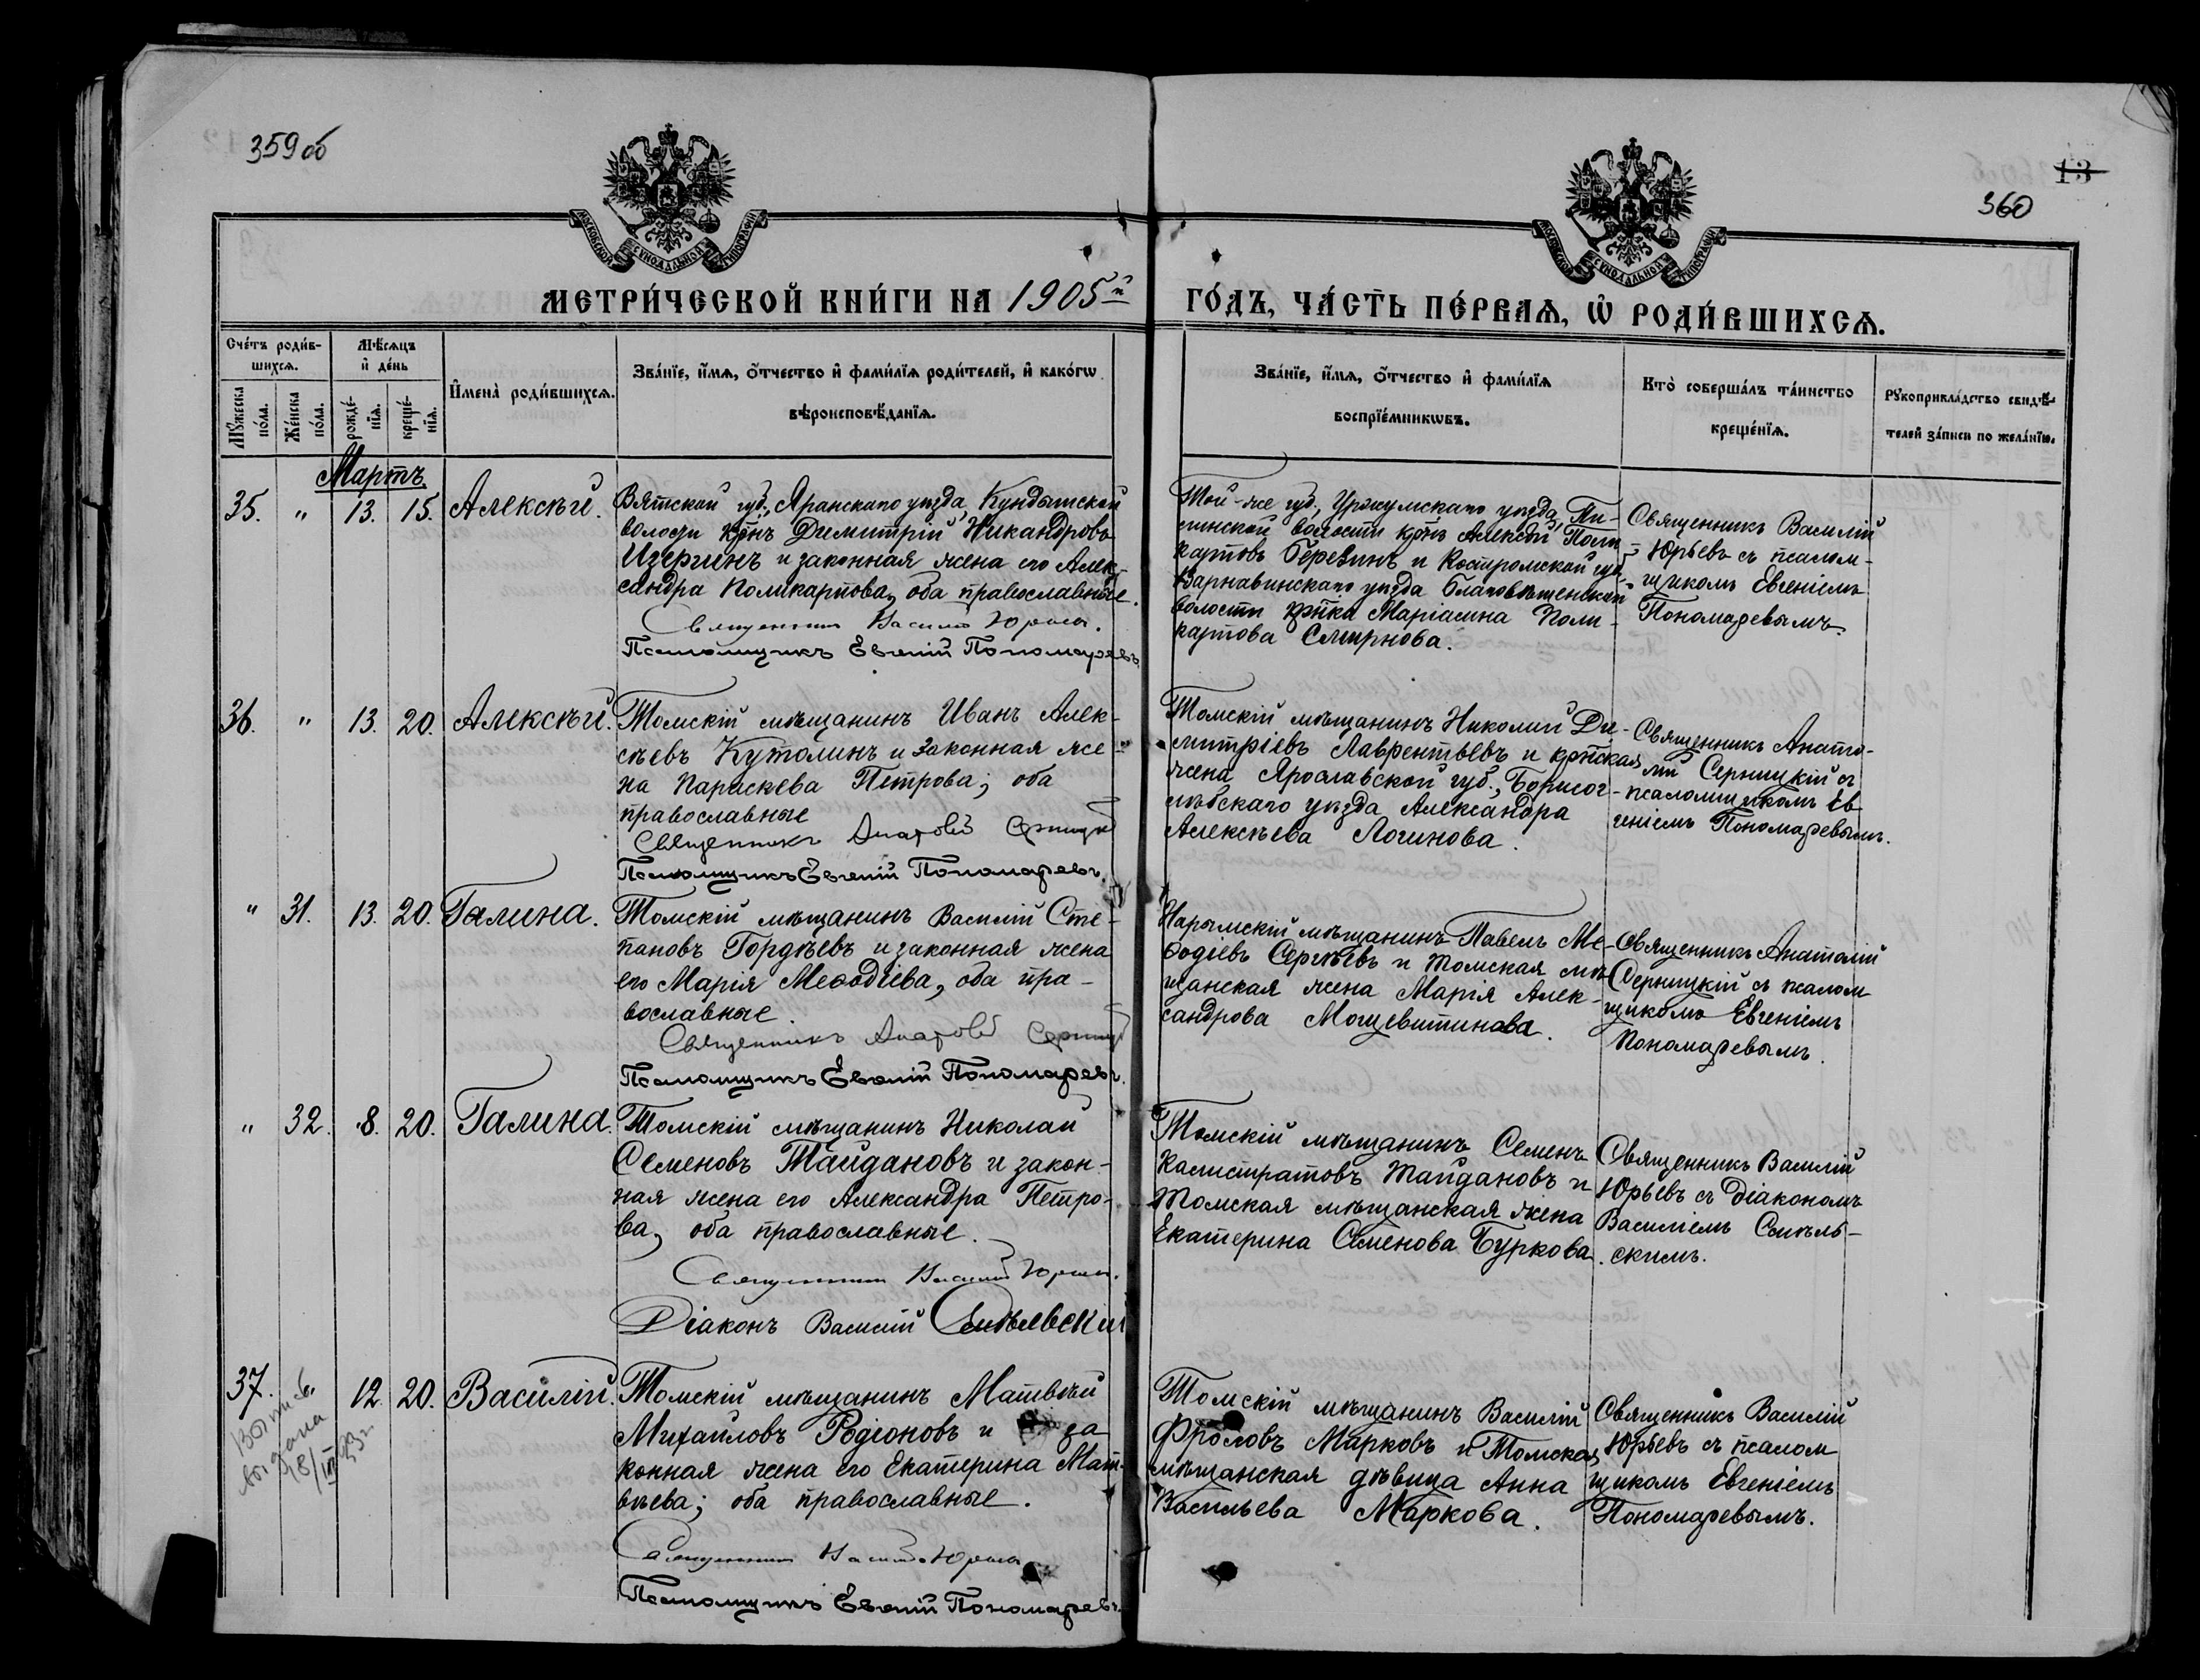 359 об
13
360
МОСКОВСКОЙ СѴНОДАЛЬНОЙ ТИПОГРАФІИ
МОСКОВСКОЙ СѴНОДАЛЬНОЙ ТИПОГРАФІИ
МЕТРИ́ЧЕСКОЙ КНИ́ГИ НА 1905й
ГО́ДЪ, ЧА́СТЬ ПЕ́РВАѦ, Ѡ҆ РОДИ́ВШИХСѦ.
Сче́тъ роди́в-
шихсѧ.
Мѣ́сѧцъ
и҆ де́нь
Мꙋ́жеска
по́ла.
Же́нска
по́ла.
рожде́-
нїѧ.
креще́-
нїѧ.
И҆мена̀ роди́вшихсѧ.
Зва́нїе, и҆́мѧ, ѻ҆́тчество и҆ фами́лїѧ роди́телей, и҆ како́гѡ
вѣроисповѣ́данїѧ.
Зва́нїе, и҆́мѧ, ѻ҆́тчество и҆ фами́лїѧ
воспрїе́мникѡвъ.
Кто̀ соверша́лъ та́инство
креще́нїѧ.
Рꙋкоприкла́дство свидѣ́-
телей за́писи по жела́нїю.
Мартъ
35. " 13. 15. Алексѣй.
Вятской губ., Яранскаго уѣзда, Кундышской
волости крнъ Димитрій Никандровъ
Изергинъ и законная жена его Алек-
сандра Поликарпова, оба православные.
Священникъ Василій Юрьевъ.
Псаломщикъ Евгеній Пономаревъ.
Той-же губ., Уржумскаго уѣзда,
волости крнъ Алексѣй
Березинъ и Костромской губ.
Варнавинскаго уѣзда Благовѣщенской
волости Поли-
карпова Смирнова.
Священникъ Василій
Юрьевъ съ псалом-
щикомъ Евгеніемъ
Пономаревымъ.
36. " 13. 20. Алексѣй.
Томскій мѣщанинъ Иванъ Алек-
сѣевъ Кутолинъ и законная же-
на Параскева Петрова; оба
православные
Священникъ Анатолій Серницкій
Псаломщикъ Евгеній Пономаревъ.
Томскій мѣщанинъ Николай Ди-
митріевъ Лаврентьевъ и
жена Ярославской губ., Борисог-
лѣбскаго уѣзда Александра
Алексѣева Логинова.
Священникъ Анато-
лій Серницкій съ
псаломщикомъ Ев-
геніемъ Пономаревымъ.
" 31. 13. 20. Галина.
Томскій мѣщанинъ Василій Сте-
пановъ Гордѣевъ и законная жена
его Марія Меѳодіева, оба пра-
вославные.
Священникъ Анатолій Серницкій
Псаломщикъ Евгеній Пономаревъ.
Нарымскій мѣщанинъ Павелъ Ме-
ѳодіевъ Сергѣевъ и томская мѣ-
щанская жена Марія Алек-
сандрова Мощевитинова.
Священникъ Анатолій
Серницкій съ псалом
щикомъ Евгеніемъ
Пономаревымъ.
" 32. 8. 20. Галина.
Томскій мѣщанинъ Николай
Семеновъ Тайдановъ и закон-
ная жена его Александра Петро-
ва, оба православные.
Священникъ Василій Юрьевъ.
Діаконъ Василій Смѣльскій
Томскій мѣщанинъ Семенъ
Калистратовъ Тайдановъ и
Томская мѣщанская жена
Екатерина Семенова Буркова.
Священникъ Василій
Юрьевъ съ діакономъ
Василіемъ Смѣль-
скимъ.
37. 12. 20. Василій.
выдана
Томскій мѣщанинъ Матвѣй
Михайловъ Родіоновъ и за
конная жена его Екатерина Мат-
вѣева; оба православные.
Священникъ Василій Юрьевъ
Псаломщикъ Евгеній Пономаревъ.
Томскій мѣщанинъ Василій
Фроловъ Марковъ и Томская
мѣщанская дѣвица Анна
Васильева Маркова.
Священникъ Василій
Юрьевъ съ псалом
щикомъ Евгеніемъ
Пономаревымъ.